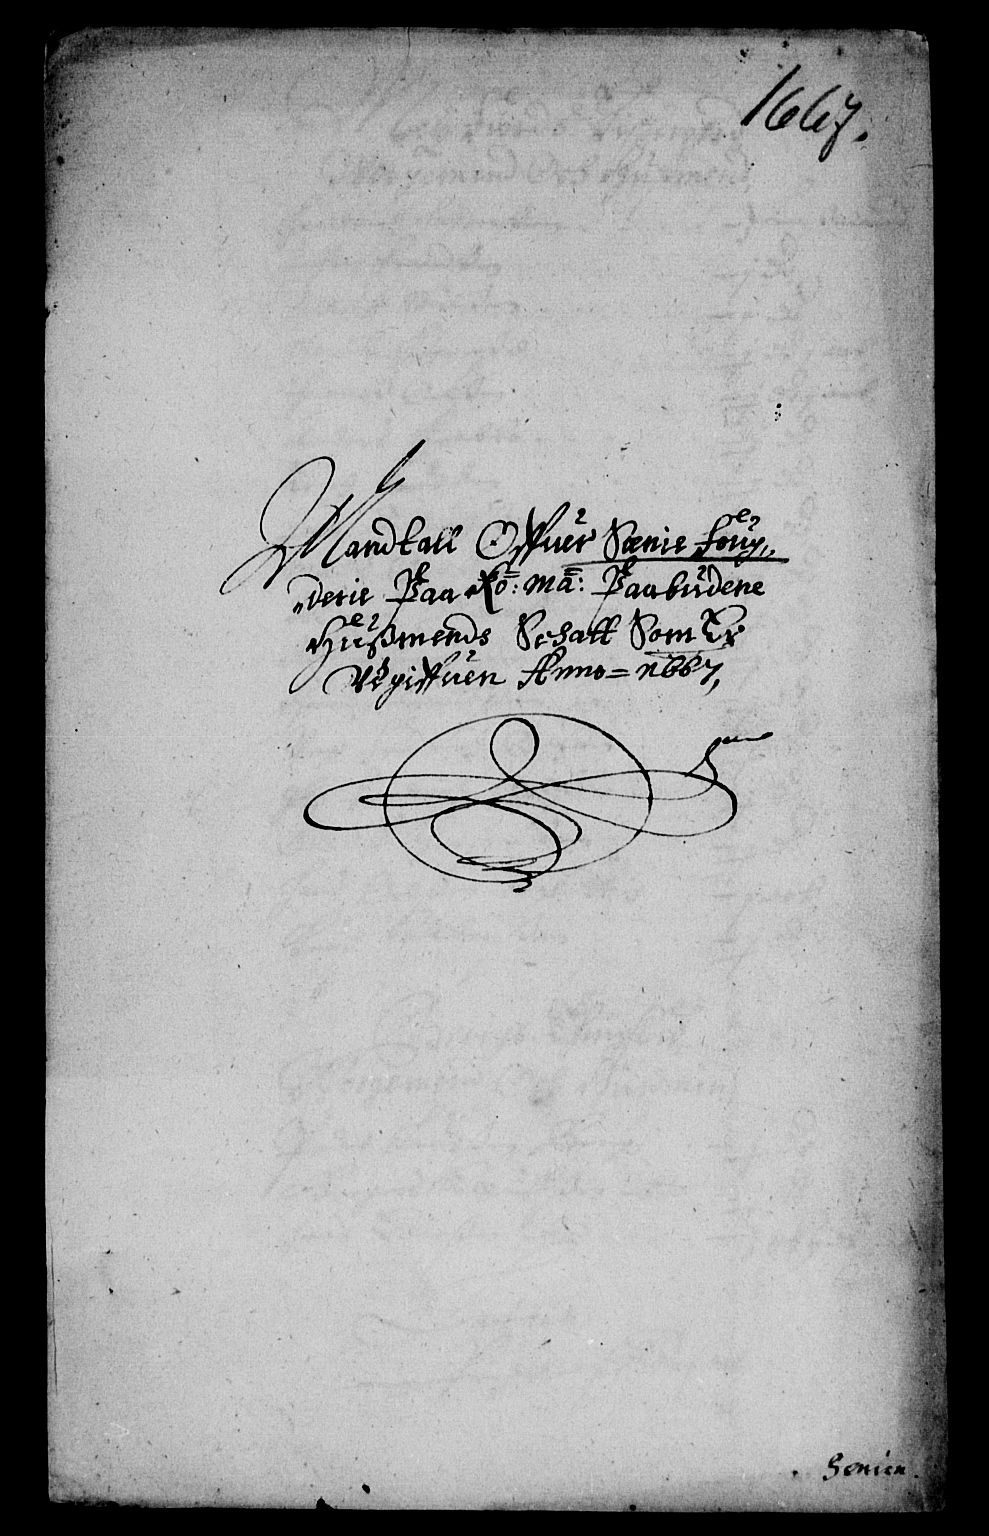 1667.
Mandtall Offuer Sænie foug„
„derie Paa Ko: Ma: Paabudene
Hußmends Schatt Som Er
Vdgiffuen Anno = 1667,
Senien.